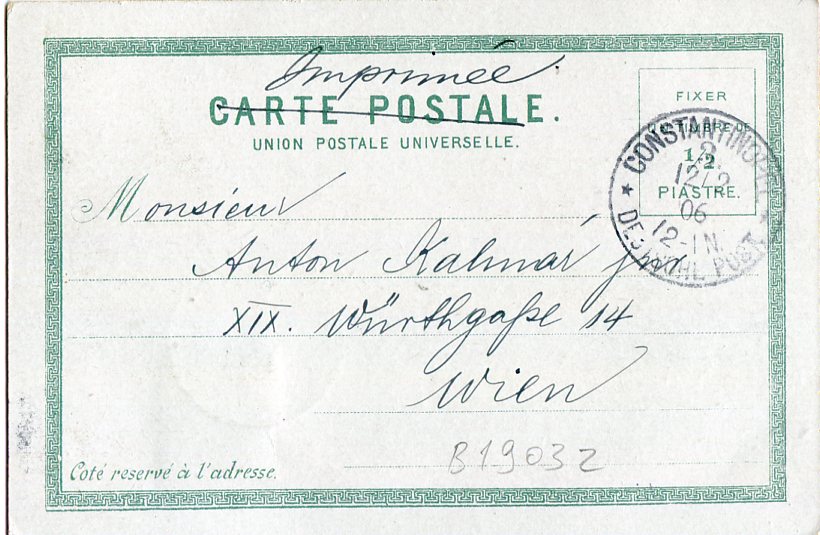 Imprimée
CARTE POSTALE.
UNION POSTALE UNIVERSELLE.
FIXER
TIMBRE
1/2
PIASTRE.
CONSTANTINOPEL
12/2
06
12-1N.
POST.
Monsieur
Anton Kalmár jun
XIX. Würthgaße 14
Wien
B19032
Coté reservé à l'adresse.